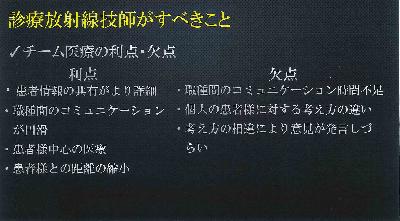 診療放射線技師がすべきこと
✓チーム医療の利点・欠点
利点
・患者情報の共有がより詳細
・職種間のコミュニケーション
が円滑
・患者様中心の医療
・患者様との距離の縮小
欠点
・職種間のコミュニケーション時間不足
・個人の患者様に対する考え方の違い
・考え方の相違により意見が発言しづ
らい